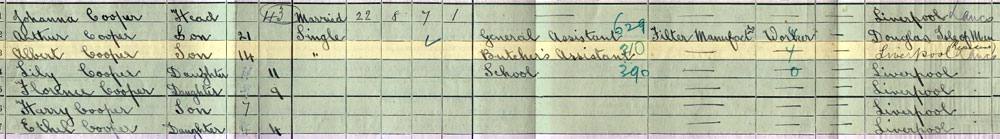 Johanna Cooper Head 43 Married 22 8 7 1 — — — — Liverpool Lancs
Arthur Cooper Son 21 Single General Assistant 629 Filter Manufactr Worker — Douglas Isle of Man
Albert Cooper Son 14 " Butcher's Assistant 210 — 4 — Liverpool Lancs
Lily Cooper Daughter 11 School 390 — 0 — Liverpool
Florence Cooper Daughter 9 — — — Liverpool
Harry Cooper Son 7 — — — Liverpool
Ethel Cooper Daughter 4 — — — Liverpool